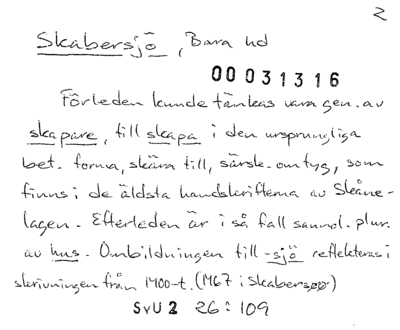 2
Skabersjö, Bara hd
00031316
Förleden kunde tänkas vara gen. av
skapare, till skapa i den ursprungliga
bet. forma, skära till, särsk. om tyg, som
finns i de äldsta handskrifterna av Skåne-
lagen. Efterleden är i så fall sannol. plur.
av hus. Ombildningen till -sjö reflekteras i
skrivningen från 1400-t. (1467 i Skabersøø)
SvU2 26:109